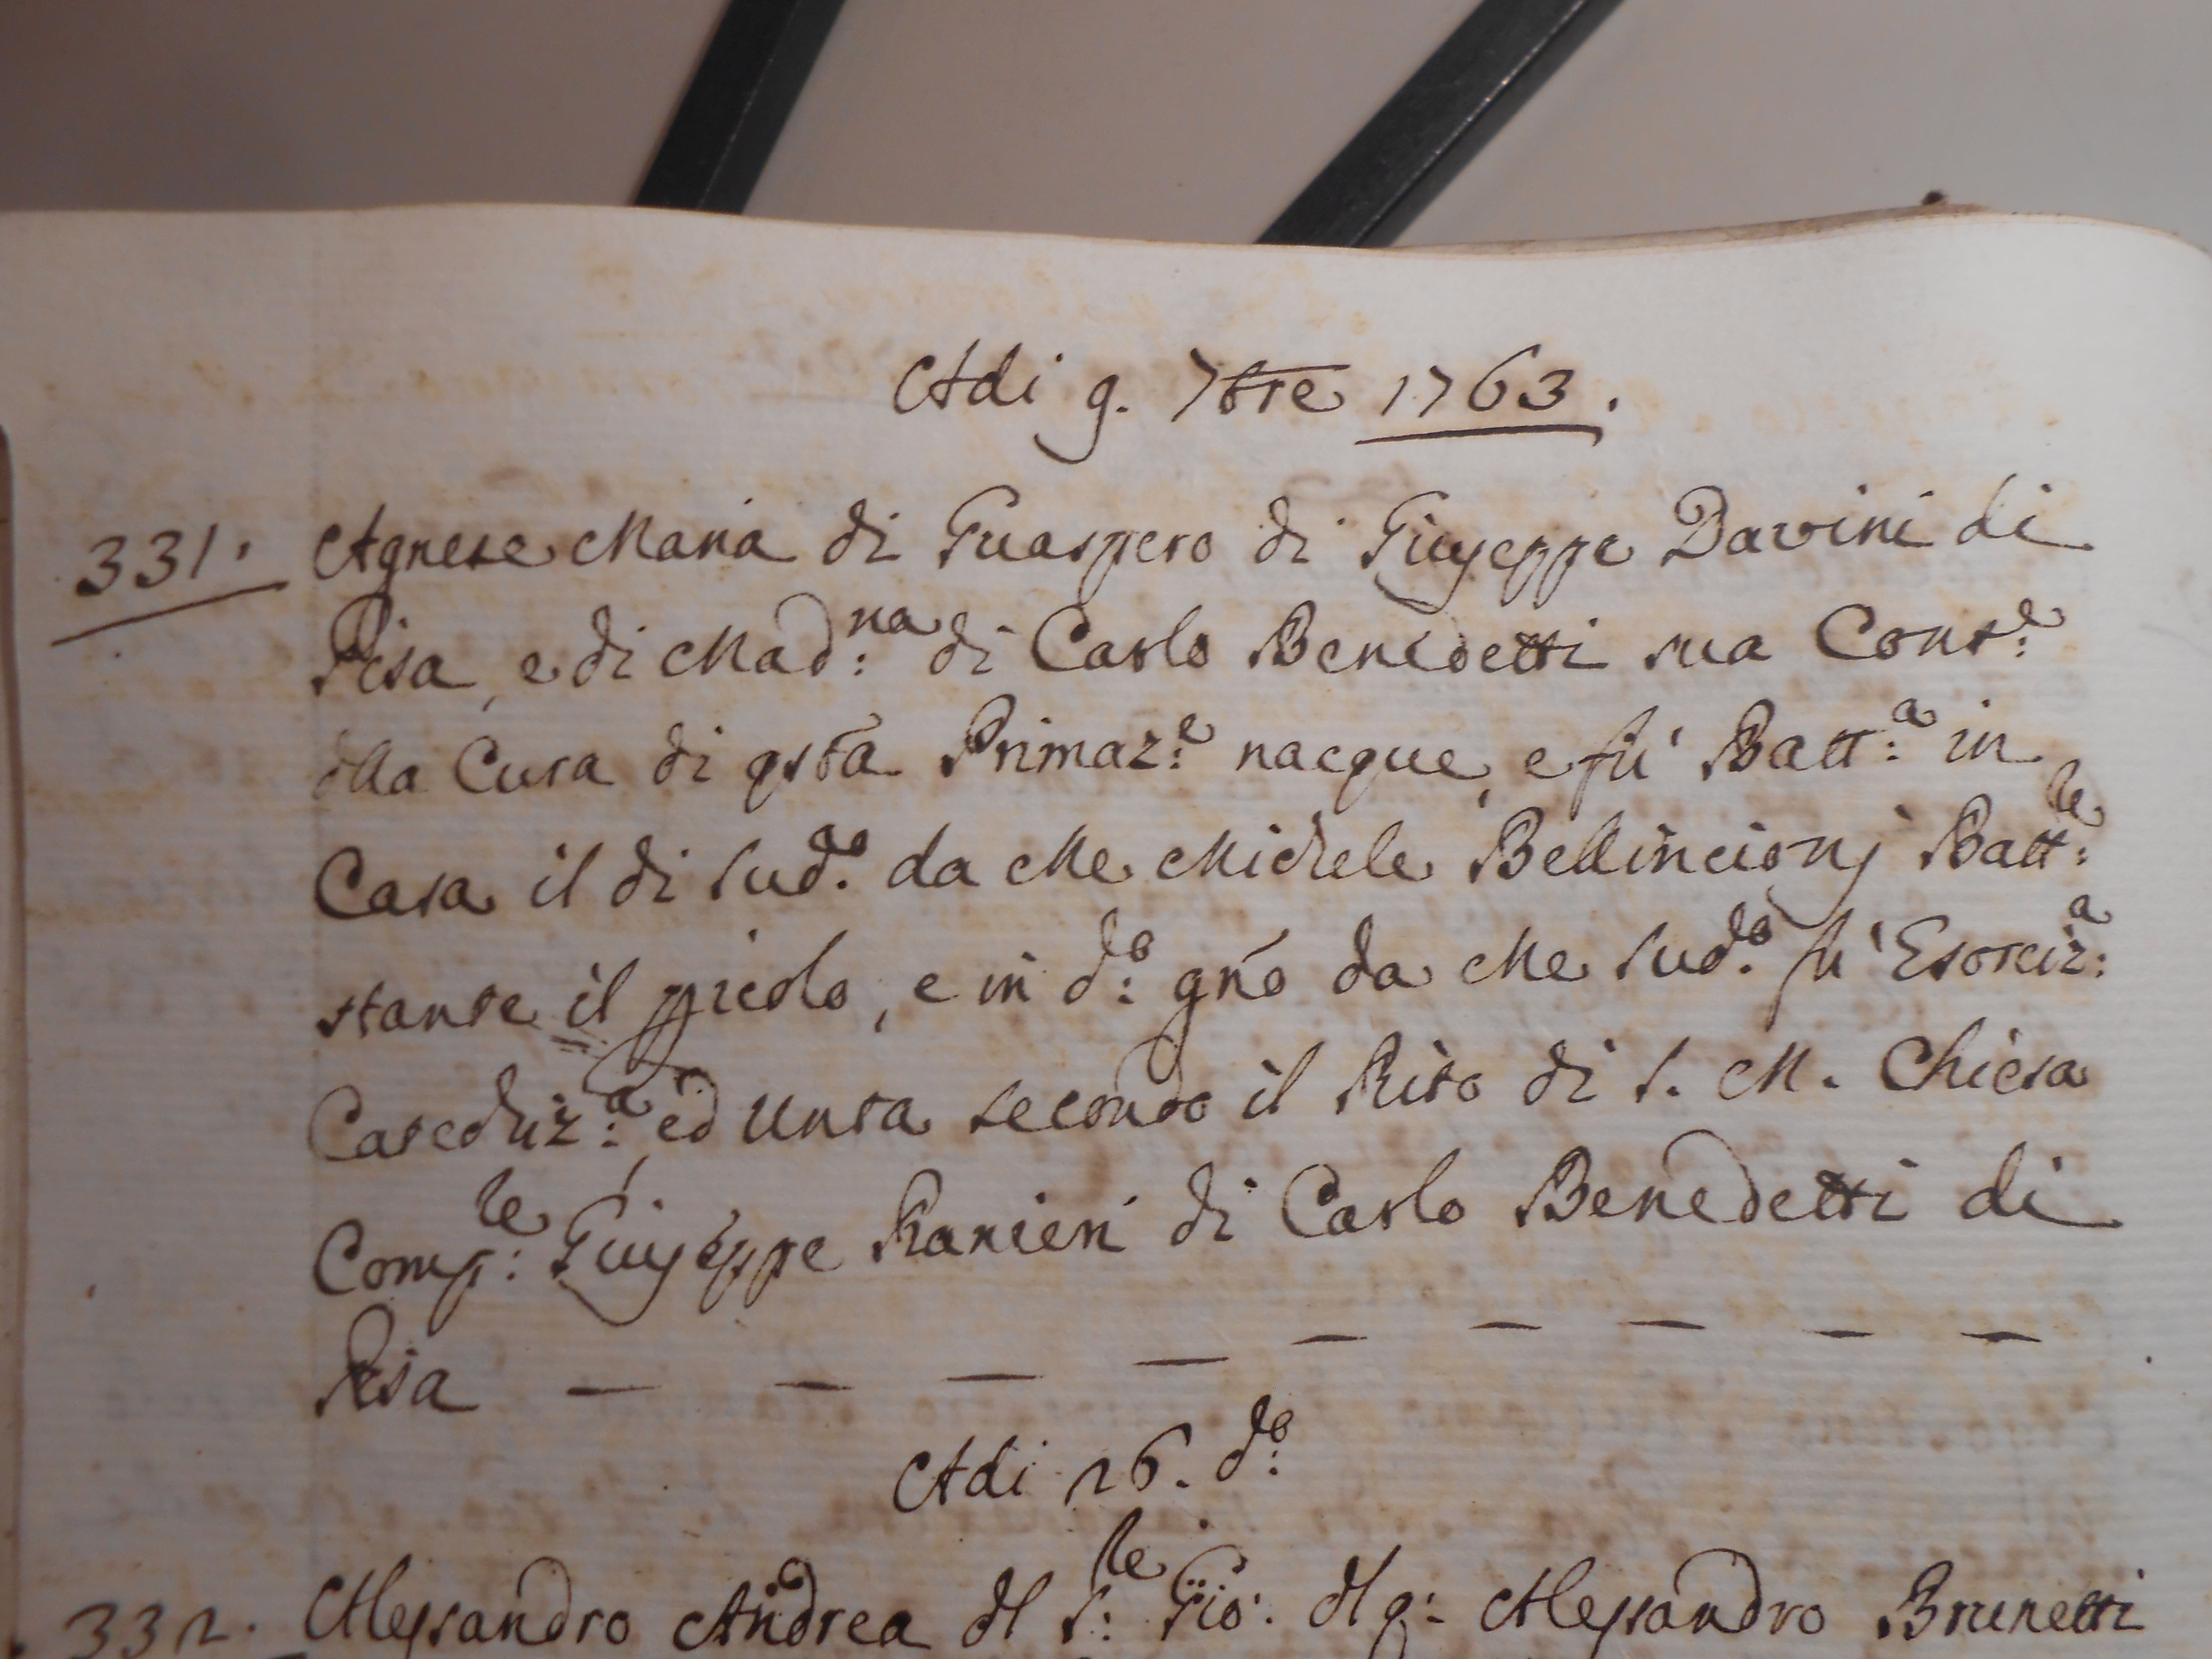 Adi 9. 7bre 1763.
331. Agnese Maria di Guaspero di Giuseppe Davini di
Pisa, e di Mad:na di Carlo Benedetti sua Cons:e
dlla Cura di qsta Primaz:e nacque, e fù Batt:a in
Casa il di sud:o da Me Michele Bellincionj Batt:re
stante il ppicolo, e in d:o gno da Me sud:o fù Esorciz:a
Catechiz:a ed Unta secondo il Rito di S. M. Chiesa
Comp:re Giuseppe Ranieri di Carlo Benedetti di
Pisa — — — — — — — — —
Adi 26. d:o
332. Alessandro Andrea dl S:re Gio: dl q: Alessandro Brunetti